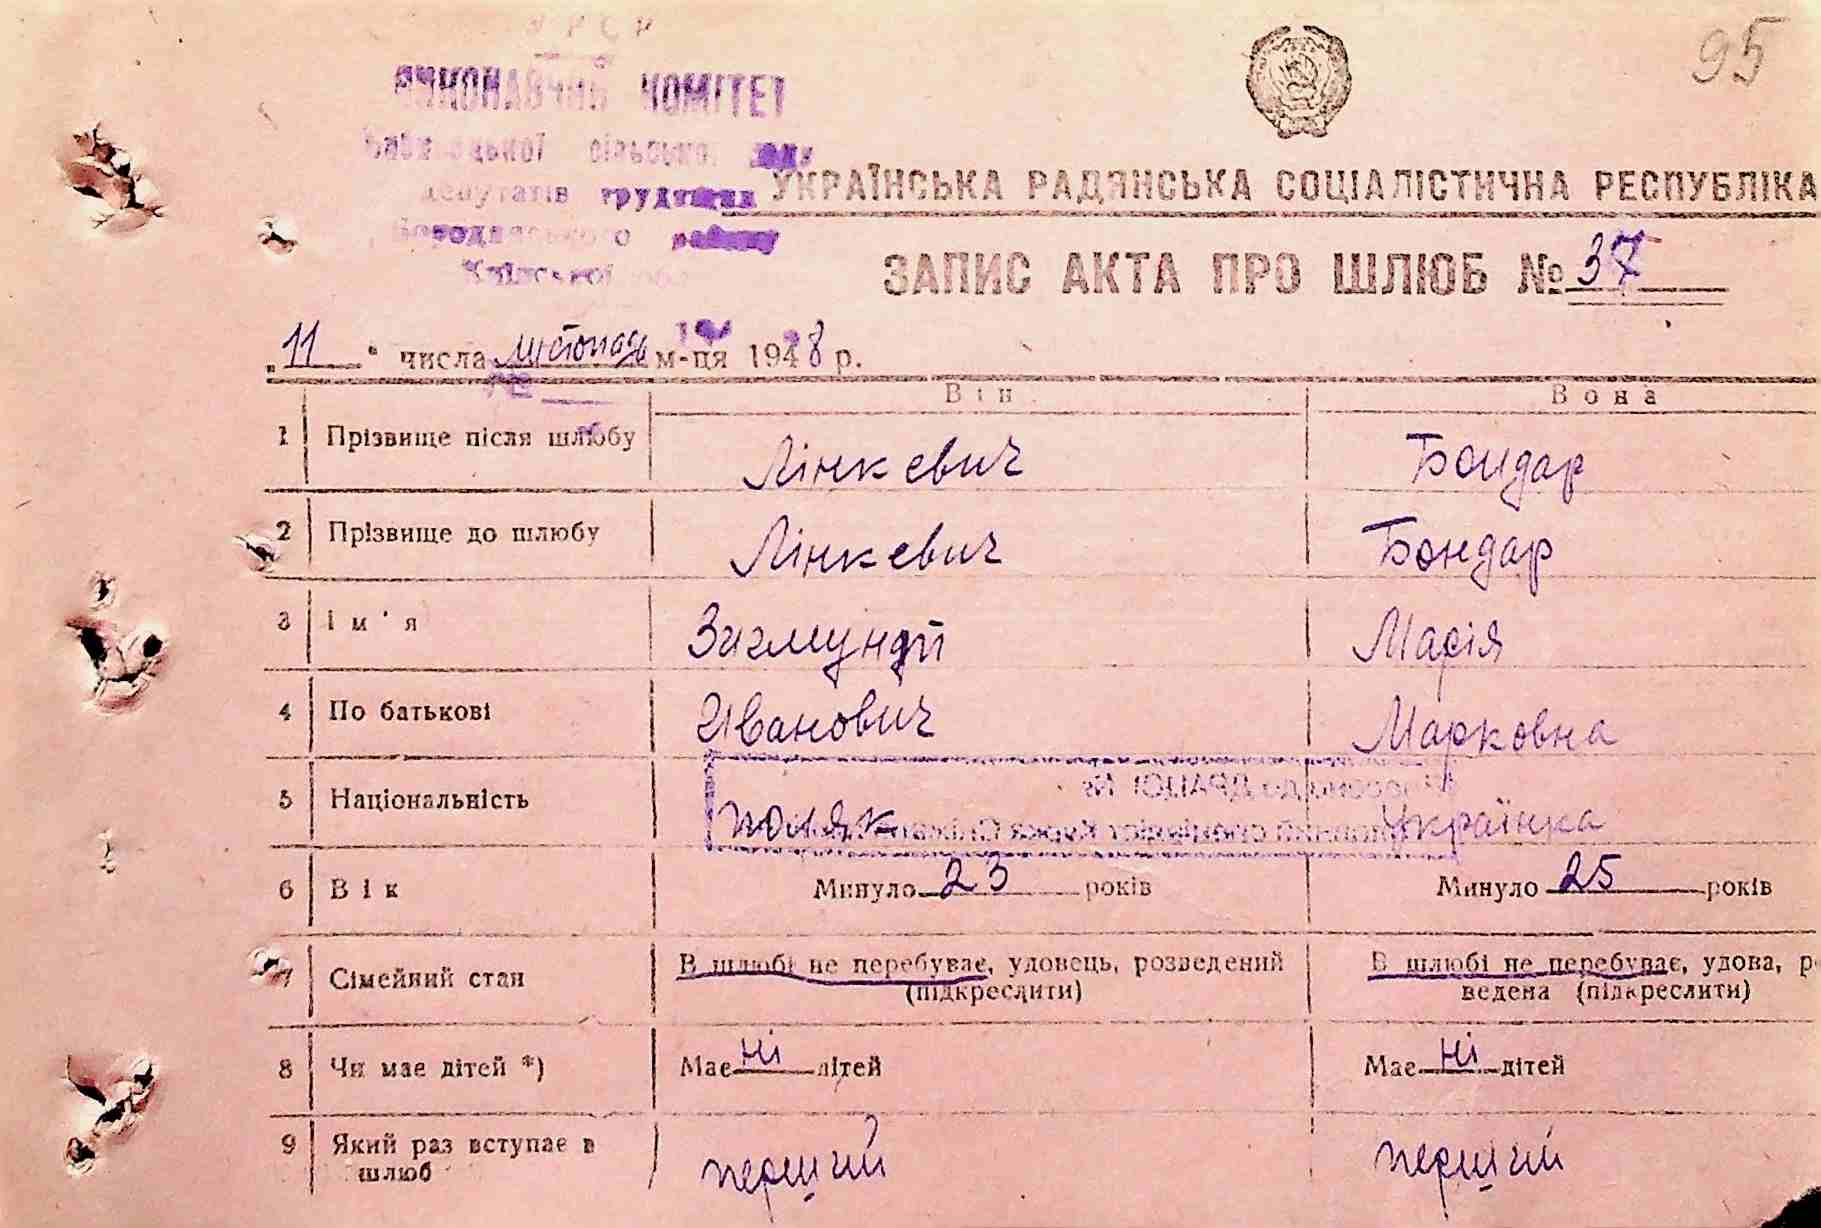 95
У Р С Р
ВИКОНАВЧИЙ КОМІТЕТ
сільської ради
депутатів трудящих
Бородянського району
Київської обл
УКРАЇНСЬКА РАДЯНСЬКА СОЦІАЛІСТИЧНА РЕСПУБЛІКА
ЗАПИС АКТА ПРО ШЛЮБ № 37
„ 11 " числа листопада м-ця 1948 р.
Він Вона
1 Прізвище після шлюбу Лінкевич Бондар
2 Прізвище до шлюбу Лінкевич Бондар
3 Ім'я Зигмунд Марія
4 По батькові Иванович Марковна
5 Національність поляк Українка
6 Вік Минуло 23 років Минуло 25 років
7 Сімейний стан В шлюбі не перебуває, удовець, розведений В шлюбі не перебуває, удова, р
(підкреслити) ведена (підкреслити)
8 Чи має дітей *) Має ні дітей Має ні дітей
9 Який раз вступає в перший перший
шлюб